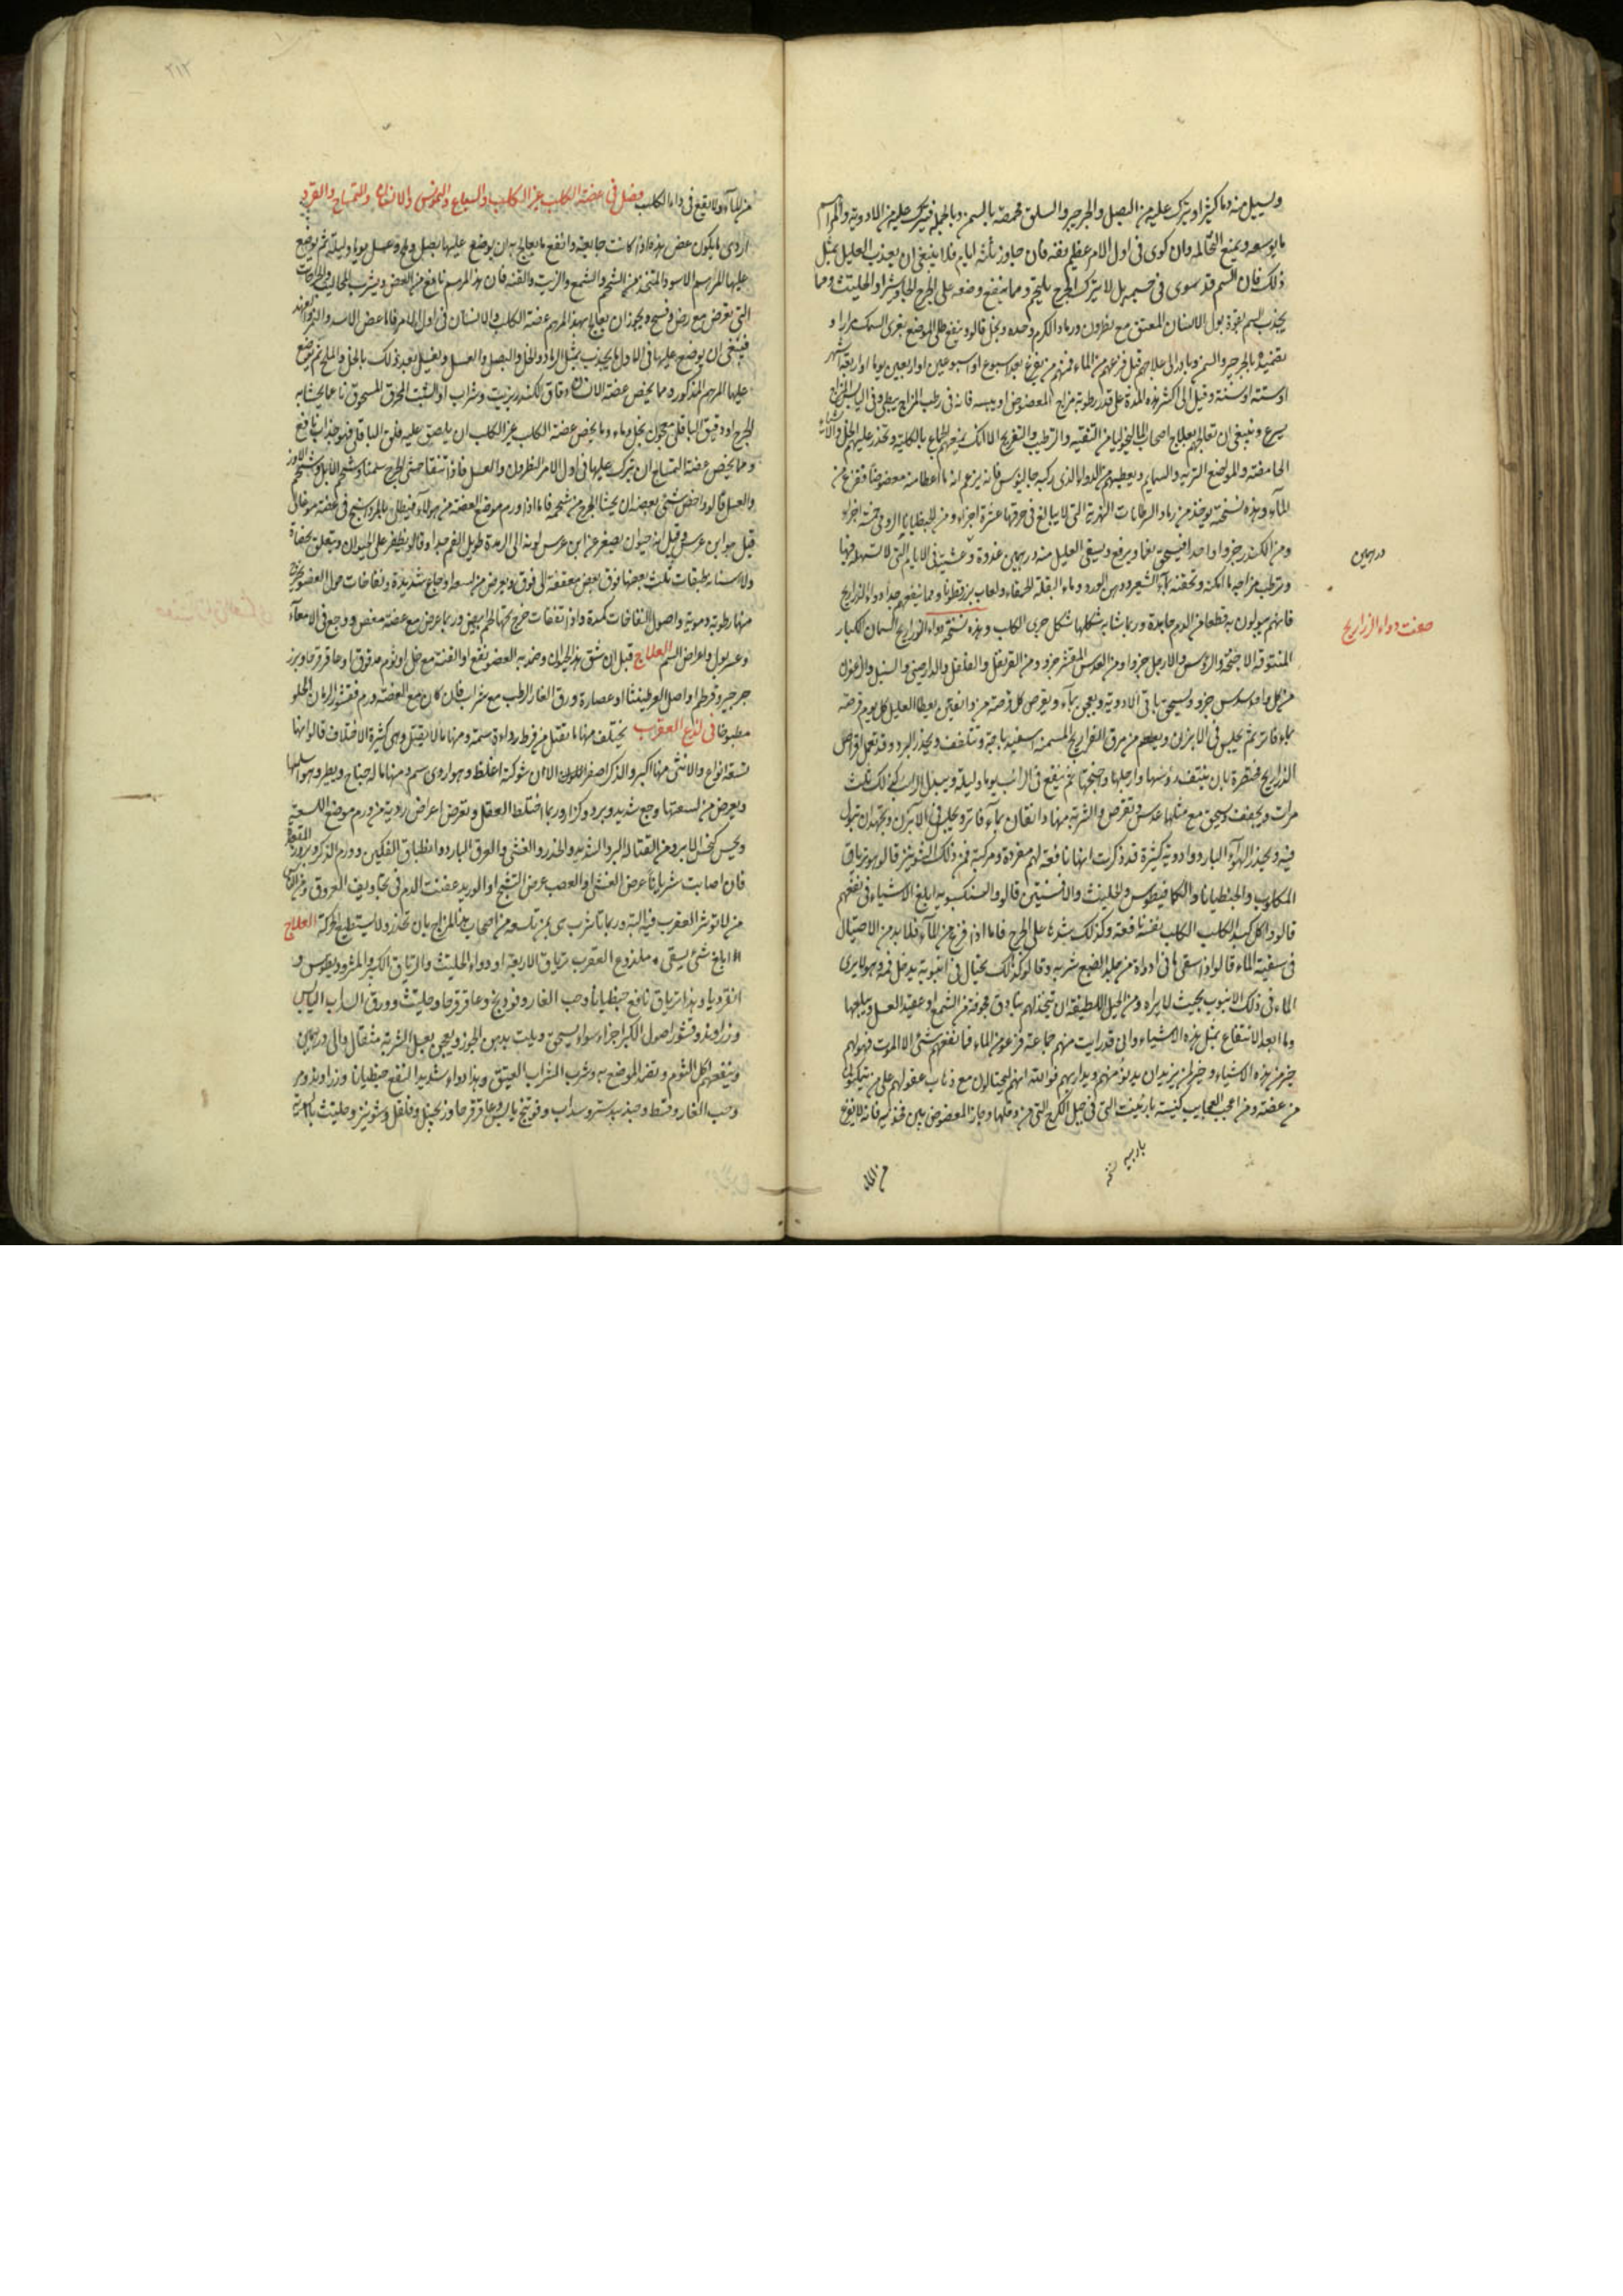 ويسيل منه دما كثيرا ويترك عليه من البصل والجرجير والسلق محمصة بالسمن وبالجملة فيترك عليه من الادوية والمراهم
ما يوسعه ويمنع التحامه وان كوى فى اول الامر عظيم نفعه فان جاوز ثلثة ايام فلا ينبغى ان يعذب العليل بمثل
ذلك فان السم قد سرى فى جسمه بل لا يترك الجرح يلتحم ومما ينفع وضعه على الجرح الجاوشير او الحلتيت ومما
يجذب السم بقوة بول الانسان المعتق مع نطرون ورماد الكرم وحده وبخل قالوا وينفع طلى الموضع بغرى السمك مرارا و
تضميده بالجرجير والسمن وبادر الى علاجهم قبل فزعهم من الماء فمنهم من يفزع بعد اسبوع او اسبوعين او اربعين يوما او اربعة اشهر
او ستة او سنة وقيل الى اكثر هذه المدة على قدر رطوبة مزاج المعضوض او يبسه فانه فى رطب المزاج يبطى وفى اليابس المزاج
يسرع وينبغى ان تعالجهم بعلاج اصحاب الماليخوليا من التنقية والترطيب والتفريح الا انك تمنعهم الجماع بالكلية وتحذر عليهم الخل والاشياء
الحامضة والمواضع الترابية والسمايم ويعطيهم من الدواء الذى ركبه جالينوس فانه يزعم انه ما اعطا منه معضوضا ففزع من
الماء وهذه نسخته يوخذ من رماد السرطانات النهرية التى لا يبالغ فى حرقها عشرة اجزاء ومن الجنطيانا الرومى خمسة اجزاء
ومن الكندر جزوا واحدا فيسحق نعما ويرفع ويسقى العليل منه درهمين غدوة وعشية فى الايام التى لا تسهله فيها
وترطب مزاجه ما امكنه وتحقنه بماء الشعير ودهن الورد وماء البقلة الحمقاء ولعاب بزرقطونا ومما ينفعهم جدا دواء الذراريح
فانهم يبولون به قطعا من الدم جامدة وربما شابه شكلها شكل جرى الكلاب وهذه نسخة دواء الذراريح السمان الكبار
المنتوفة الاجنحة والرؤس والارجل جزوا ومن العدس المقشر جزو ومن القرنفل والفلفل والدارصينى والسنبل والزعفران
من كل واحد سدس جزو ويسحق باقى الادوية ويعجن بماء ويقرص كل قرصة من دانقين يعطا العليل كل يوم قرصة
بماء فاتر ثم يجلس فى الابزن ويطعم من مرق الفراريج المسمنة اسفيدباجة ويتلحف ويحذر البرد وقد تعمل اقراص
الذراريح مختصرة بان ينتف رؤسها وارجلها واجنحتها ثم ينقع فى الرائب يوما وليلة ويبدل الرائب كذلك ثلث
مرات ويجفف ويسحق مع مثلها عدس ويقرص والشربة منها دانقان بماء فاتر ويجلس فى الابزن ويجتهد ان يبول
فيه ويحذر الهواء البارد وادوية كثيرة قد ذكرت انها نافعة لهم مفردة ومركبة فمن ذلك الشونيز قالوا هو ترياق
المكلوب والجنطيانا والكمافيطوس والحلتيث والافسنتين قالوا والسنكسبويه ابلغ الاشياء فى نفعهم
قالوا واكل كبد الكلب الكلب نفسه نافعة وكذلك شدها على الجرح فاما اذا فزع من الماء فلا بد من الاحتيال
فى سقيه الماء قالوا واذا سقى ما فى اداواة من جلد الضبع شربه وقالوا كذلك يحتال فى انبوبة يدخل فمه وهو لا يرى
الماء فى ذلك الانبوب بحيث لا يراه ومن الحيل اللطيفة ان تتخذ لهم بنادق مجوفة من الشمع او عقيد العسل ويبلعها
وما ابعد الانتفاع بمثل هذه الاشياء وانى قد رايت منهم جماعة فزعوا من الماء فما نفعهم شئ الا الموت فهو لهم
خير من هذه الاشياء وخير لمن يريد ان يدنو منهم ويداريهم فوالله انهم ليحتالون مع ذهاب عقولهم على من يتمكنون
من عضته ومن اعجب العجايب كنيسة باربعنت التى فى جبل الكرج التى من دخلها وجاز المعضوض بين فخذيه فانه لا يفزع
درهمين
صفت دواء الذراريح
باربيه نسخة
من الماء
٢١٢
من الماء ولا يقع فى داء الكلب فصل فى عضة الكلب غير الكلب والسباع والنموس والانسان والتمساح والقرد
اردى ما يكون عض هذه اذا كانت جايعة وانفع ما يعالج به ان يوضع عليها بصل وملح وعسل يوما وليلة ثم يوضع
عليها المرهم الاسود المتخذ من الشحم والشمع والزيت والقنه فان هذا المرهم نافع من العض ويشرب المخاليب والجراحات
التى تعرض مع رض وفسخ ويجوز ان يعالج بهذا المرهم عضة الكلب والانسان فى اول الامر فاما عض الاسد والنمر والفهد
فينبغى ان يوضع عليها فى الاول ما يجذب مثل الرماد والخل والبصل والعسل ويغسل بعد ذلك بالخل والملح ثم يوضع
عليها المرهم المذكور ومما يخص عضة الانسان دقاق الكندر بزيت وشراب او الشبث المحرق المسحوق ناعما يحشا به
الجرح او دقيق الباقلى معجون بخل وماء ومما يخص عضة الكلب غير الكلب ان يلصق عليه فلق الباقلى فهو جذاب نافع
ومما يخص عضة التمساح ان يترك عليها فى اول الامر النطرون والعسل فاذا تنقا حشى الجرح سمنا وشحم الايل وشحم الاوز
والعسل قالوا واخص شئ بعضه ان يحشا الجرح من شحمه فاما اذا ورم موضع العضة من هولاء فيطلى بالمرداسنج فى عضة موغالى
قيل هو ابن عرس وقيل انه حيوان يصغر عن ابن عرس لونه الى الرمدة طويل الفم جدا وقالوا يظفر على الحيوان ويتعلق بخصاه
ولاسنانه طبقات ثلث بعضها فوق بعض معقفة الى فوق ويعرض من لسعه اوجاع شديدة ونفاخات حول العضو يخرج
منها رطوبة دموية واصول النفاخات كمدة واذا تفقات خرج تحتها لحم ابيض وربما عرض مع عضته مغص ووجع فى الامعاء
وعسر بول واعراض السم العلاج قيل ان شق هذا الحيوان وضمد به العضو نفع او القنة مع خل او ثوم مدقوق او عاقرقرحا وبزر
جرجير وقرطم او اصل العرطنيثا او عصارة ورق الغار الرطب مع شراب فان كان مع العضة ورم فقشور الرمان الحلو
مطبوخا فى لدغ العقرب يختلف منها ما يقتل من فرط رداءة سمه ومنها ما لا يقتل وهى كثيرة الاختلاف قالوا انها
تسعة انواع والانثى منها اكبر والذكر اصفر اللون الا ان شوكته اغلظ وهو اردى سم ومنها ما له جناح ويطير وهو اسلمها
ويعرض من لسعتها وجع شديد وبرد وكزاز وربما اختلط العقل وتعرض اعراض ردية من ورم موضع اللسعة
ويحس كنخس الابر ومن القتالة البرد الشديد والخدر والغشى والعرق البارد وانطباق الفكين وورم الذكر وبروز المقعدة
فان اصابت شريانا عرض الغشى او العصب عرض التشنج او الوريد عفنت الدم فى تجاويف العروق ومن الناس
من لا توثر العقرب فيه البتة وربما تاثرت هى بمن تلسعه من اصحاب هذا المزاج بان تخدر ولا تستطيع الحركة العلاج
ابلغ شئ يسقى ملدوغ العقرب ترياق الاربعة او دواء الحلتيث والترياق الكبير والمثروديطوس و
انقرديا وهذا ترياق نافع جنطيانا وحب الغار وفوذنج وعاقرقرحا وحلتيث وورق السداب اليابس
وزراوند وقشور اصول الكبر اجزاء سواء يسحق ويلت بدهن الجوز ويعجن بعسل الشربة مثقال والى درهمين
وينفعهم اكل الثوم وتضمد الموضع به وشرب الشراب العتيق وهذا دواء شديد النفع جنطيانا وزراوند ومر
وحب الغار وقسط وجندبيدستر وسداب وفوتنج يابس وعاقرقرحا وزنجبيل وفلفل وشونيز وحلتيث بالسوية